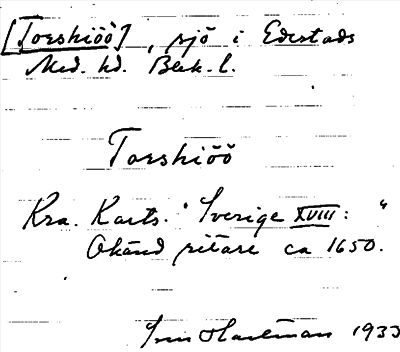 [Torshiöö], sjö i Edestads
Med. hd. Blek. l.
Torshiöö
Kra. Kart. "Sverige XVIII: "
Okänd ritare ca 1650.
Hartman 1933